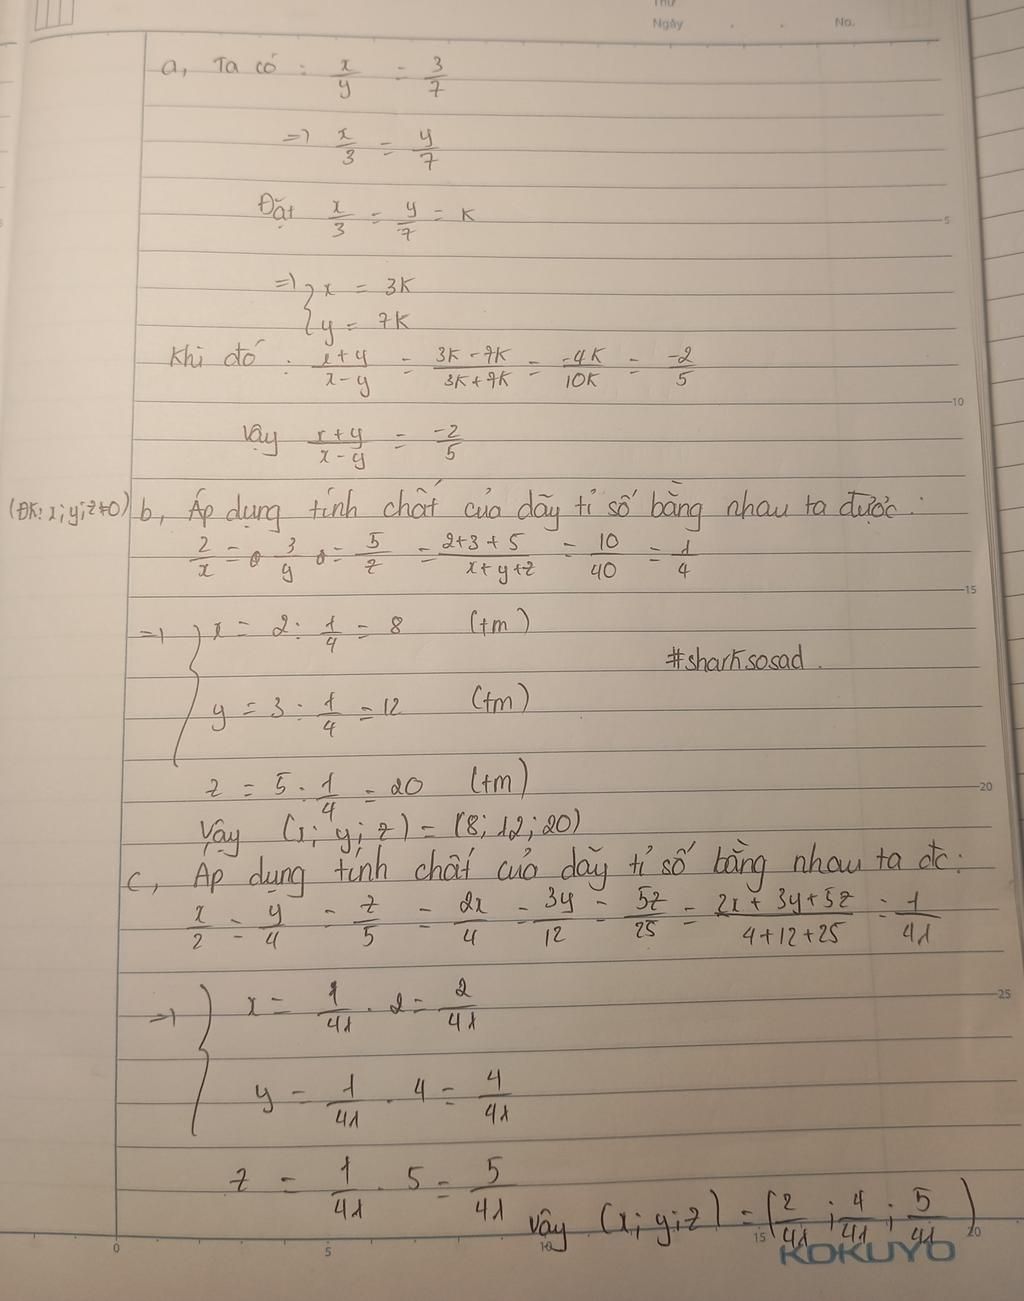 Thứ
Ngày . . No.
a, Ta có : x/y = 3/7
=> x/3 = y/7
Đặt x/3 = y/7 = K
5
=> { x = 3K
y = 7K
Khi đó : x+y/x-y = 3K-7K/3K+7K = -4K/10K = -2/5
10
Vậy x+y/x-y = -2/5
(ĐK: x;y;z≠0) b, Áp dụng tính chất của dãy tỉ số bằng nhau ta được :
2/x = 3/y = 5/z = 2+3+5/x+y+z = 10/40 = 1/4
15
=> { x = 2 : 1/4 = 8 (tm)
#sharksosad.
y = 3 : 1/4 = 12 (tm)
z = 5 : 1/4 = 20 (tm)
20
Vậy (x; y; z) = (8; 12; 20)
c, Áp dụng tính chất của dãy tỉ số bằng nhau ta đc:
x/2 = y/4 = z/5 = 2x/4 = 3y/12 = 5z/25 = 2x+3y+5z/4+12+25 = 1/41
25
=> { x = 1/41 . 2 = 2/41
y = 1/41 . 4 = 4/41
z = 1/41 . 5 = 5/41
Vậy (x; y; z) = (2/41 ; 4/41 ; 5/41)
0 5 10 15 20
KOKUYO